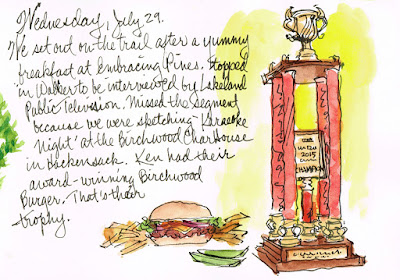 Wednesday, July 29.
We set out on the trail after a yummy
breakfast at Embracing Pines. Stopped
in Walker to be interviewed by Lakeland
Public Television. Missed the segment
because we were sketching "Karaoke
Night" at the Birchwood CharHouse
in Hackensack. Ken had their
award-winning Birchwood
Burger. That's their
trophy.
2015
CHAMPION